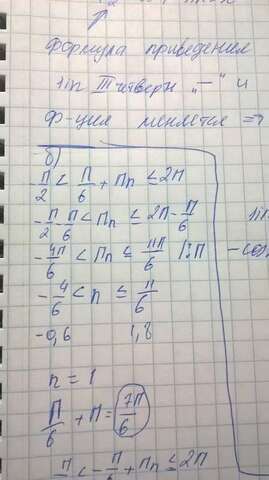 формула приведения
sin III четверти „—“ и
ф-ция меняется =>
б)
-π/2 < π/6 + πn ≤ 2π
-π/2 - π/6 < πn ≤ 2π - π/6
-4π/6 < πn ≤ 11π/6 |:π
-4/6 < n ≤ 11/6
-0,6 1,8
n = 1
π/6 + π = 7π/6
-π/2 < -π/6 + πn ≤ 2π